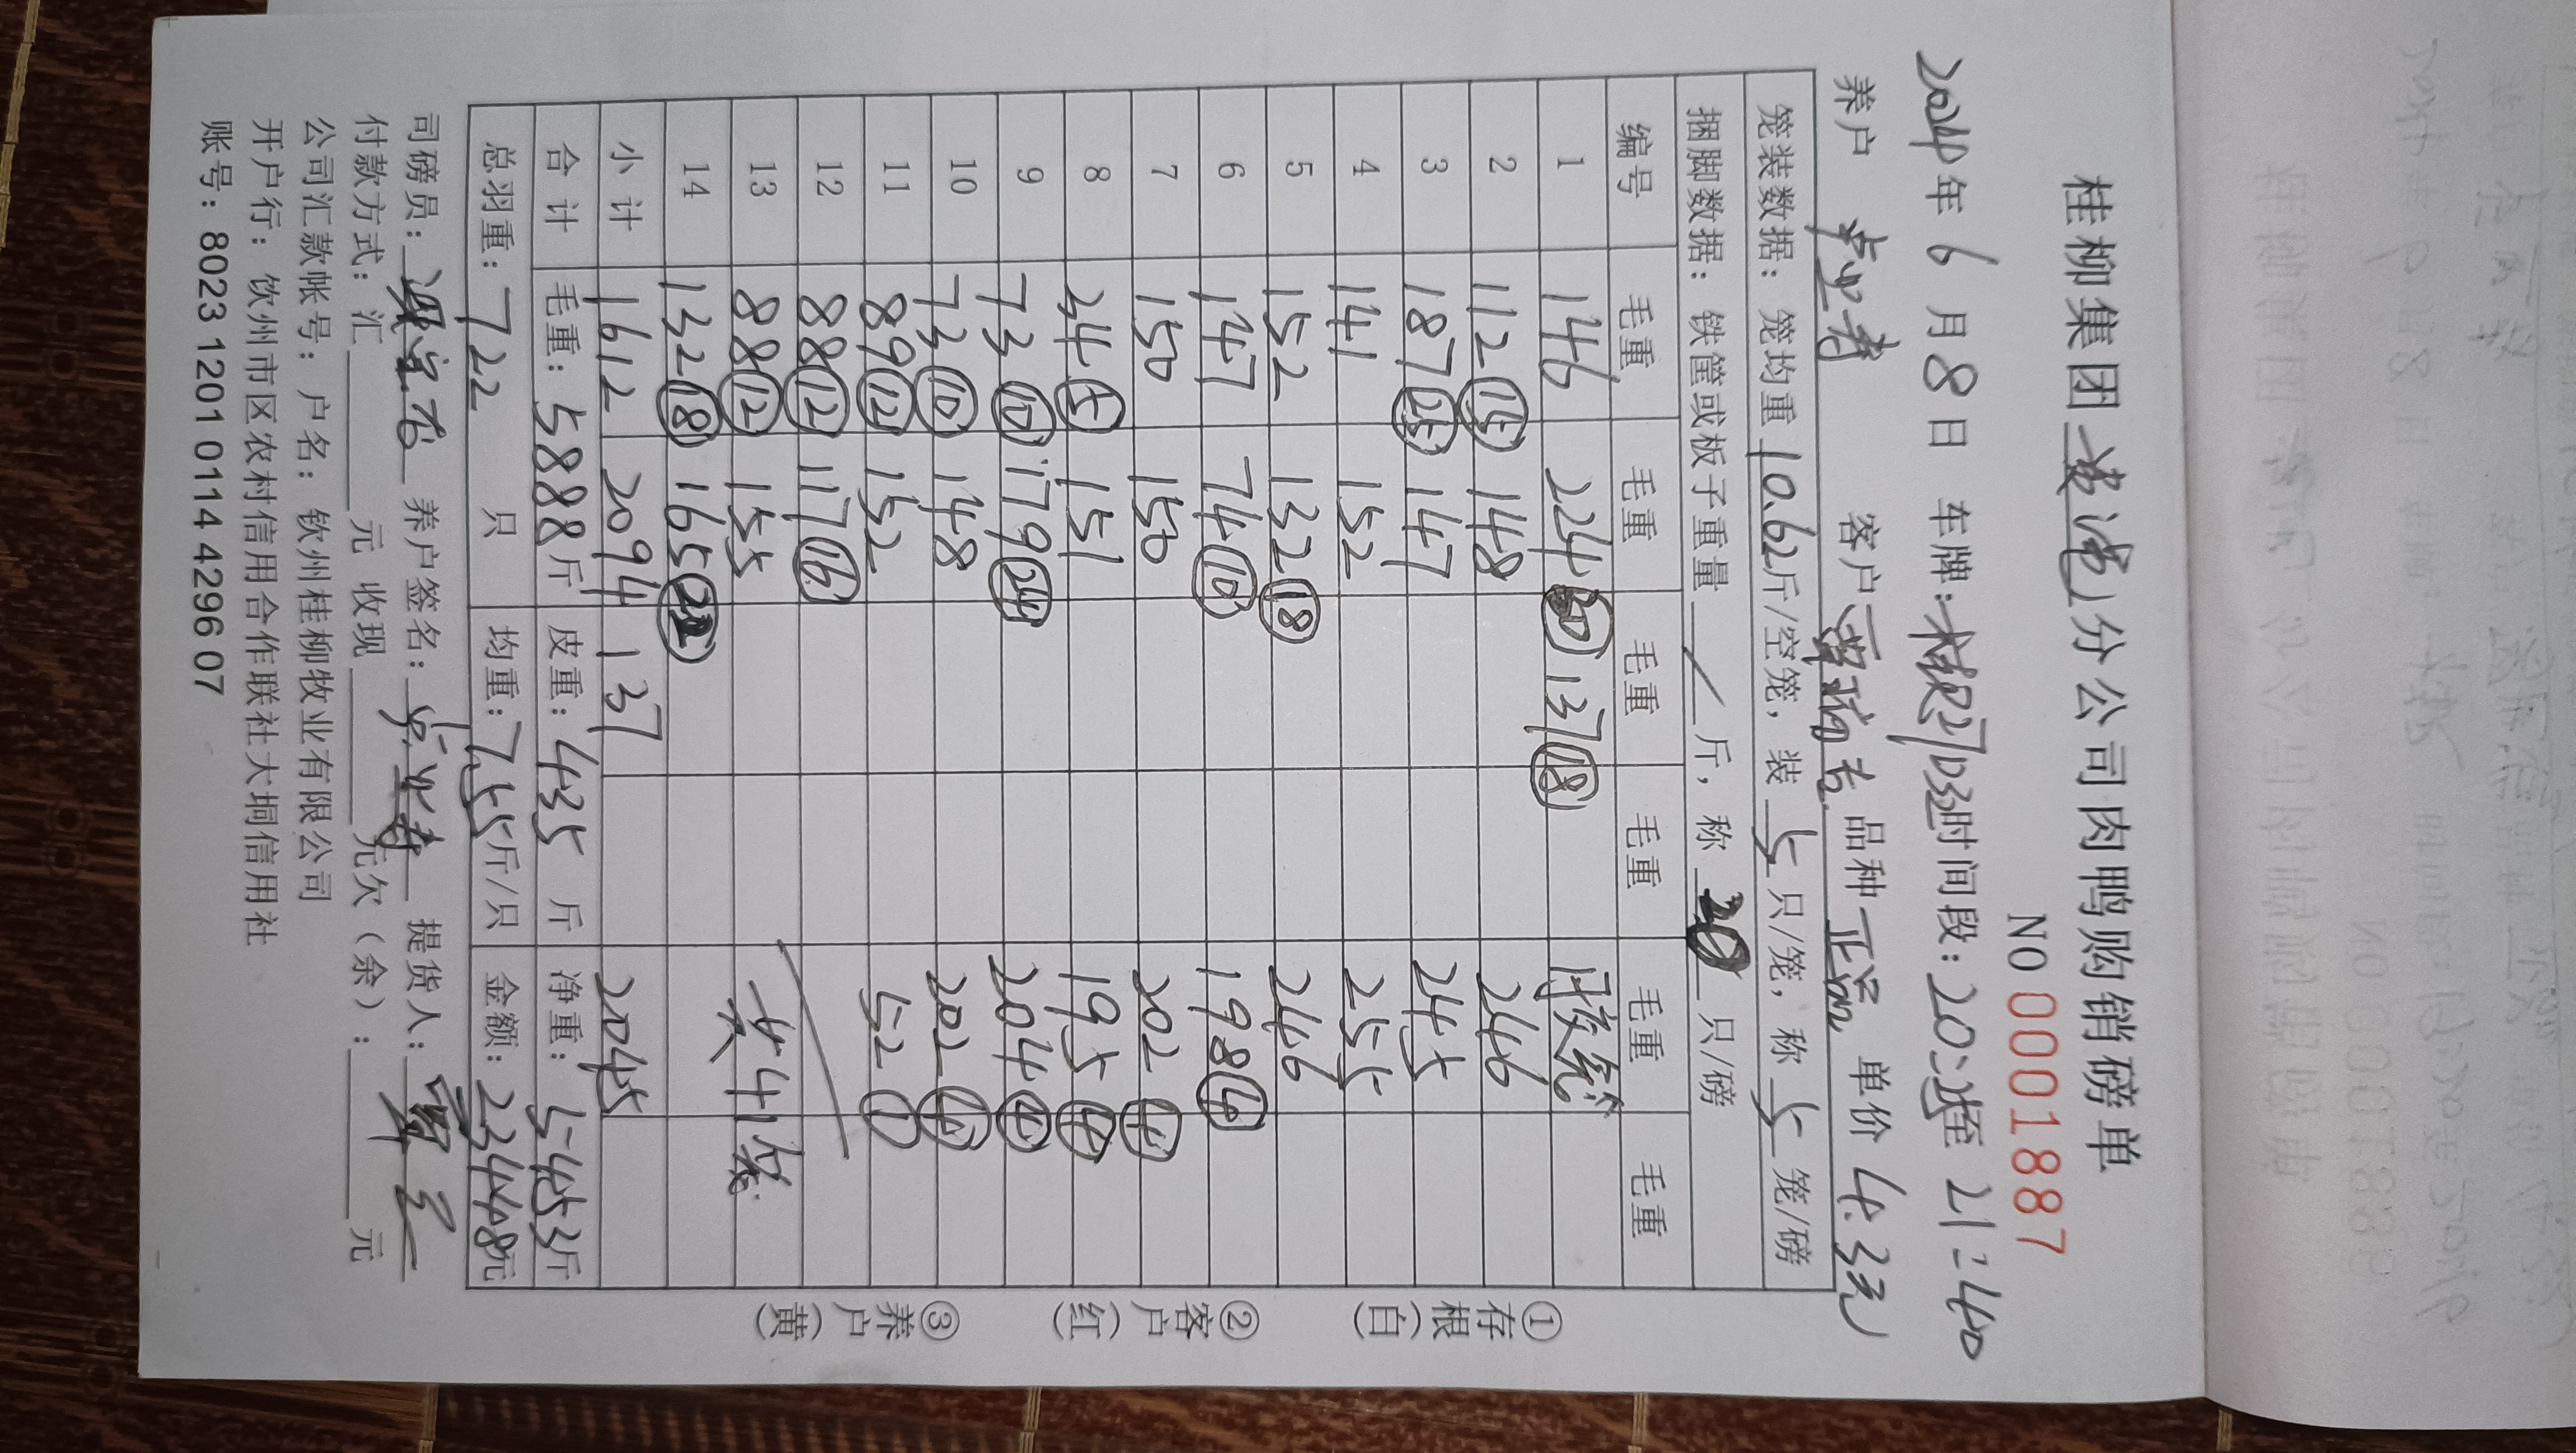 桂柳集团 分公司肉鸭购销磅单
NO 0001887
2024年 6 月 8 日 车牌: 时间段: 20: 至 21:40
养户 客户 品种 正品 单价 4.3元
笼装数据: 笼均重 10.62 斤/空笼, 装 5 只/笼, 称 5 笼/磅
捆脚数据: 铁筐或板子重量 / 斤, 称 只/磅
编号 毛重 毛重 毛重 毛重 毛重 毛重
1 146 224 137 ⑱
2 112 ⑮ 148 246
3 187 ㉕ 147 245
4 141 152 255
5 152 132 ⑱ 246
6 147 74 ⑩ 198 ④
7 150 150 202 ④
8 34 ⑤ 151 195 ④
9 73 ⑩ 179 ㉔ 204 ④
10 73 ⑩ 148 202 ④
11 89 ⑫ 152 52 ①
12 88 ⑫ 117 ⑯
13 88 ⑫ 155 共41笼
14 132 ⑱ 165 ㉒
小 计 1612 2094 137 2045
合 计 毛重: 5888 斤 皮重: 435 斤 净重: 5453 斤
总羽重: 722 只 均重: 7.55 斤/只 金额: 23448 元
司磅员: 养户签名: 提货人:
付款方式: 汇 元 收现 元欠(余): 元
公司汇款帐号: 户名: 钦州桂柳牧业有限公司
开户行: 钦州市区农村信用合作联社大垌信用社
账号: 8023 1201 0114 4296 07
①存根(白) ②客户(红) ③养户(黄)